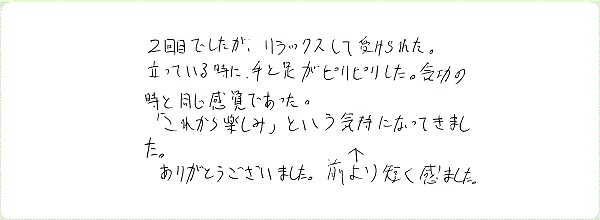 2回目でしたが、リラックスして受けられた。
立っている時に、手と足がピリピリした。気功の
時と同じ感覚であった。
「これから楽しみ」という気持になってきまし
た。
ありがとうございました。前より短く感じました。